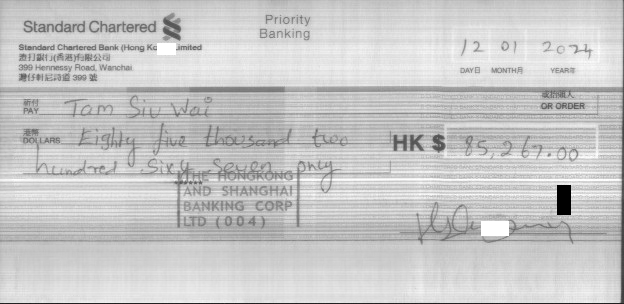 Standard Chartered
Priority
Banking
Standard Chartered Bank (Hong Limited
渣打銀行(香港)有限公司
399 Hennessy Road, Wanchai
灣仔軒尼詩道 399 號
12 01 2024
DAY日 MONTH月 YEAR年
祈付
PAY Tam Siu Wai
或抬頭人
OR ORDER
港幣
DOLLARS Eighty five thousand two
hundred Sixty Seven only
HK $ 85,267.00
THE HONGKONG
AND SHANGHAI
BANKING CORP
LTD (004)